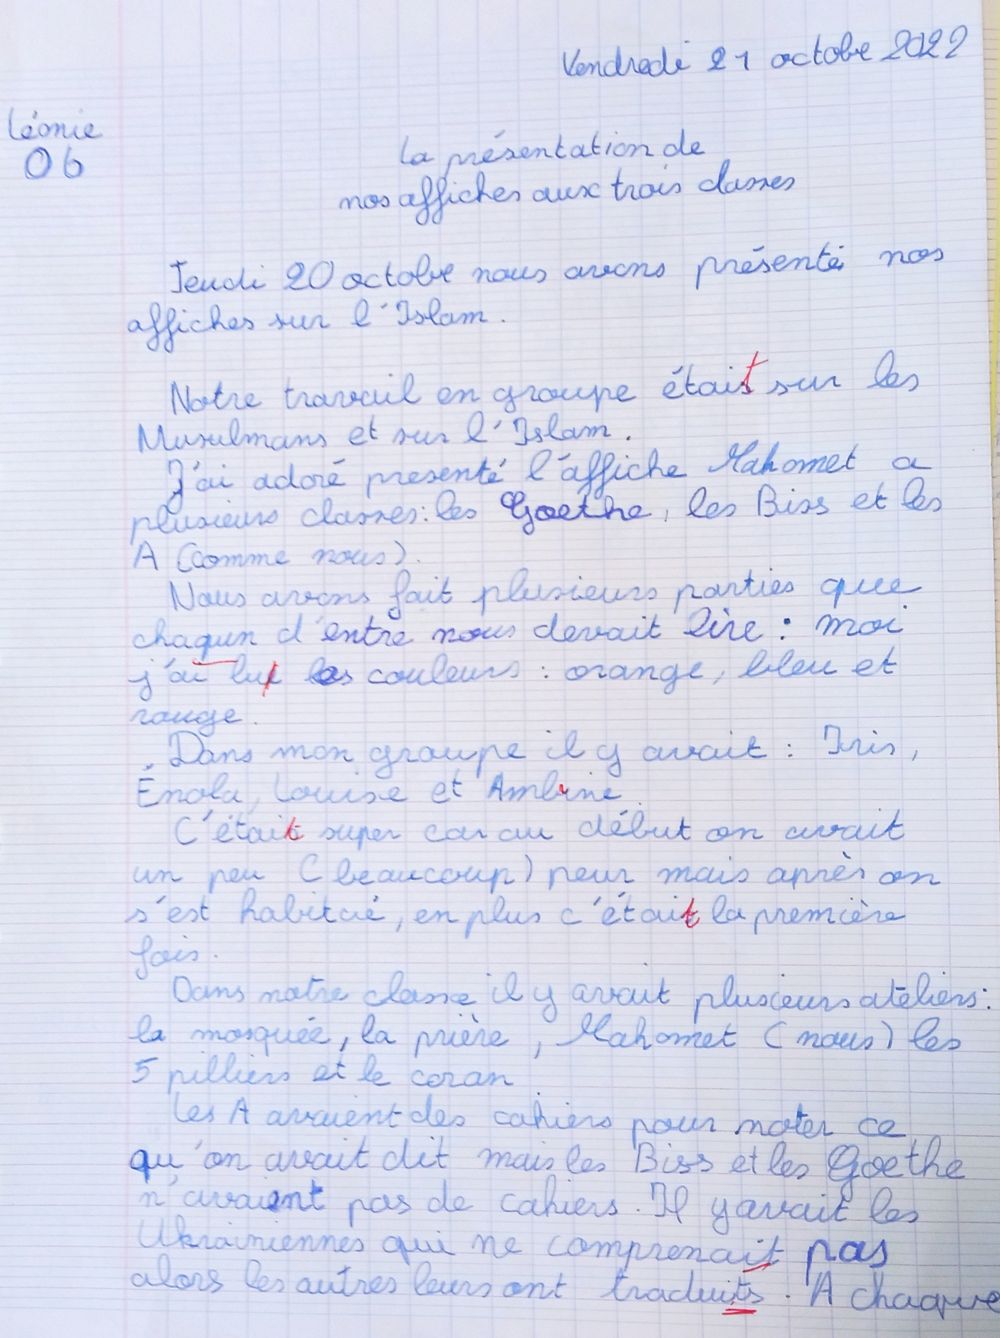 Vendredi 21 octobre 2022
Léonie
06
La présentation de
nos affiches aux trois classes
Jeudi 20 octobre nous avons présenté nos
affiches sur l'Islam.
Notre travail en groupe était sur les
Musulmans et sur l'Islam.
J'ai adoré presenté l'affiche Mahomet a
plusieurs classes: les Goethe, les Biss et les
A (comme nous).
Nous avons fait plusieurs parties que
chaqun d'entre nous devait lire : moi
j'ai lu les couleurs : orange, bleu et
rouge.
Dans mon groupe il y avait : Iris,
Énola, Louise et Ambrine.
C'était super car au début on avait
un peu (beaucoup) peur mais après on
s'est habitué, en plus c'était la première
fois.
Dans notre classe il y avait plusieurs atéliers:
la mosquée, la prière, Mahomet (nous) les
5 pilliers et le coran
Les A avaient des cahiers pour noter ce
qu'on avait dit mais les Biss et les Goethe
n'avaient pas de cahiers. Il y avait les
Ukrainiennes qui ne comprenait pas
alors les autres leurs ont traduits. A chaque